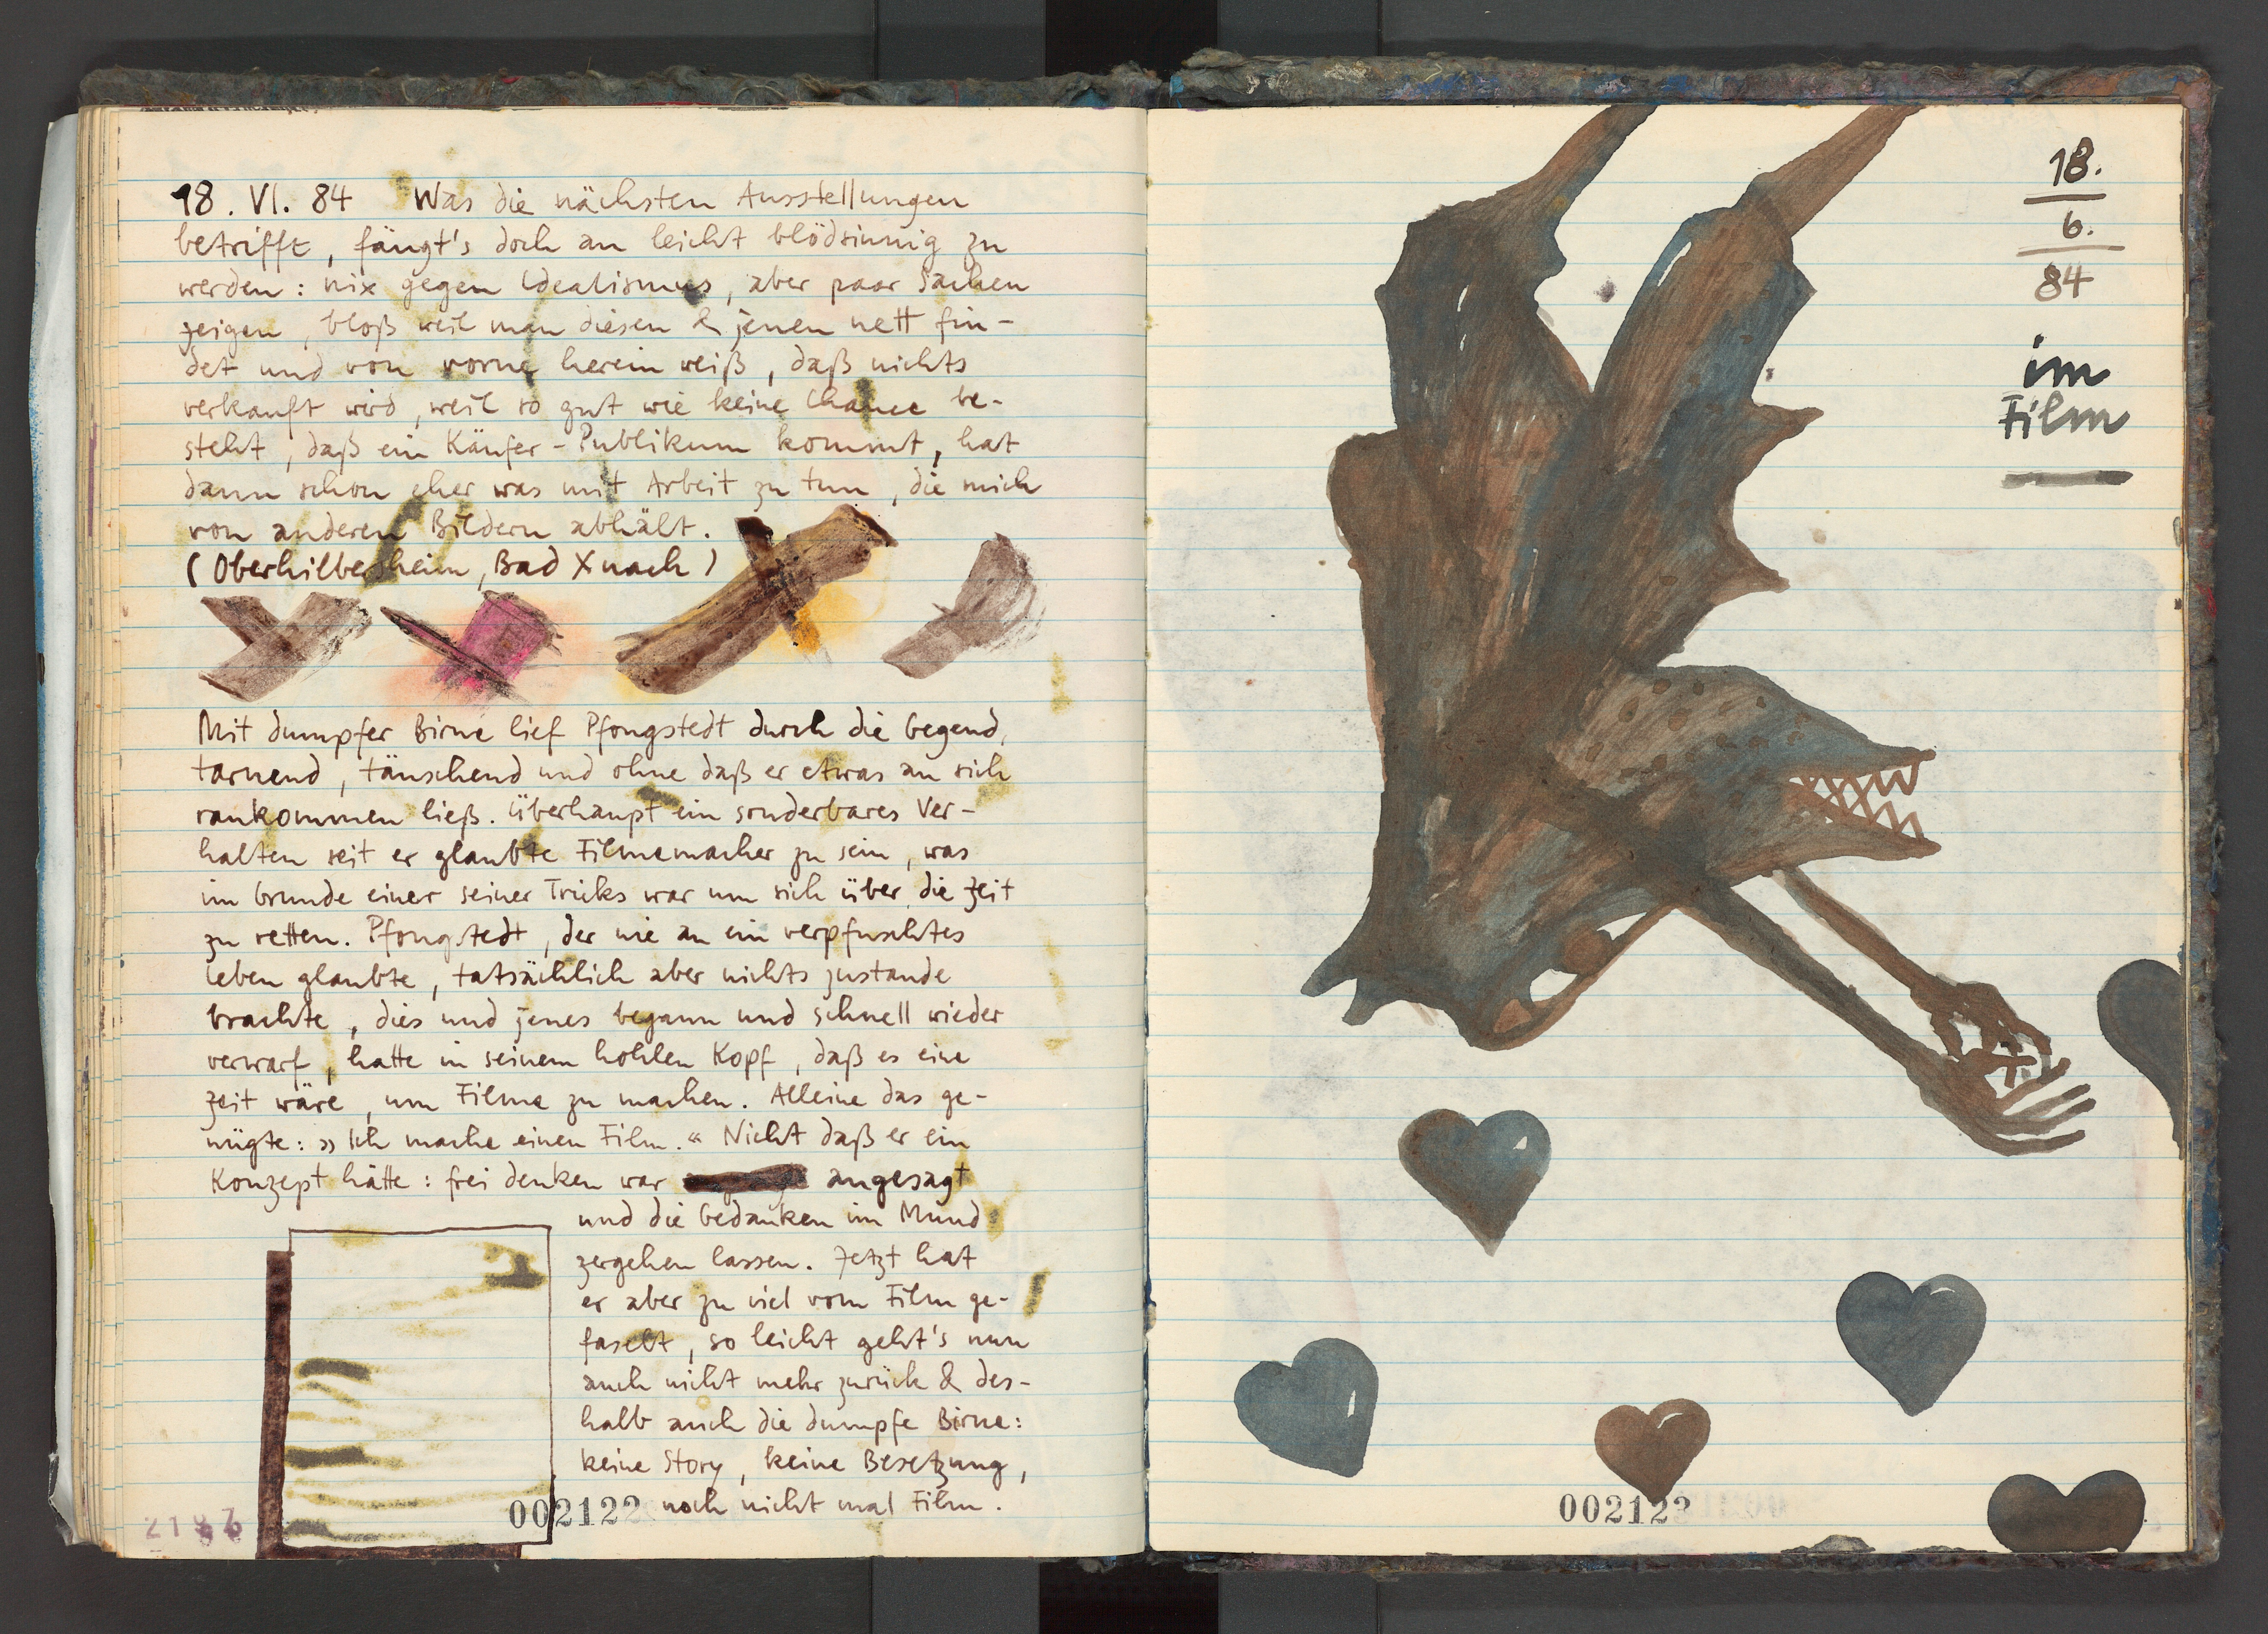 18. VI. 84 Was die nächsten Ausstellungen
betrifft, fängt's doch an leicht blödsinnig zu
werden: nix gegen Idealismus, aber paar Sachen
zeigen, bloß weil man diesen & jenen nett fin-
det und von vorne herein weiß, daß nichts
verkauft wird, weil so gut wie keine Chance be-
steht, daß ein Käufer-Publikum kommt, hat
dann schon eher was mit Arbeit zu tun, die mich
von anderen Bildern abhält.
(Oberhilbersheim, Bad Xnach)
Mit dumpfer Birne lief Pfongstedt durch die Gegend,
tarnend, täuschend und ohne daß er etwas an sich
rankommen ließ. Überhaupt ein sonderbares Ver-
halten seit er glaubte Filmemacher zu sein, was
im Grunde einer seiner Tricks war um sich über die Zeit
zu retten. Pfongstedt, der nie an ein verpfuschtes
Leben glaubte, tatsächlich aber nichts zustande
brachte, dies und jenes begann und schnell wieder
verwarf, hatte in seinem hohlen Kopf, daß es eine
Zeit wäre, um Filme zu machen. Alleine das ge-
nügte: »Ich mache einen Film.« Nicht daß er ein
Konzept hätte: frei denken war angesagt
und die Gedanken im Mund
zergehen lassen. Jetzt hat
er aber zu viel vom Film ge-
faselt, so leicht geht's nun
auch nicht mehr zurück & des-
halb auch die dumpfe Birne:
keine Story, keine Besetzung,
noch nicht mal Film.
002122
18.
6.
84
im
Film
002123